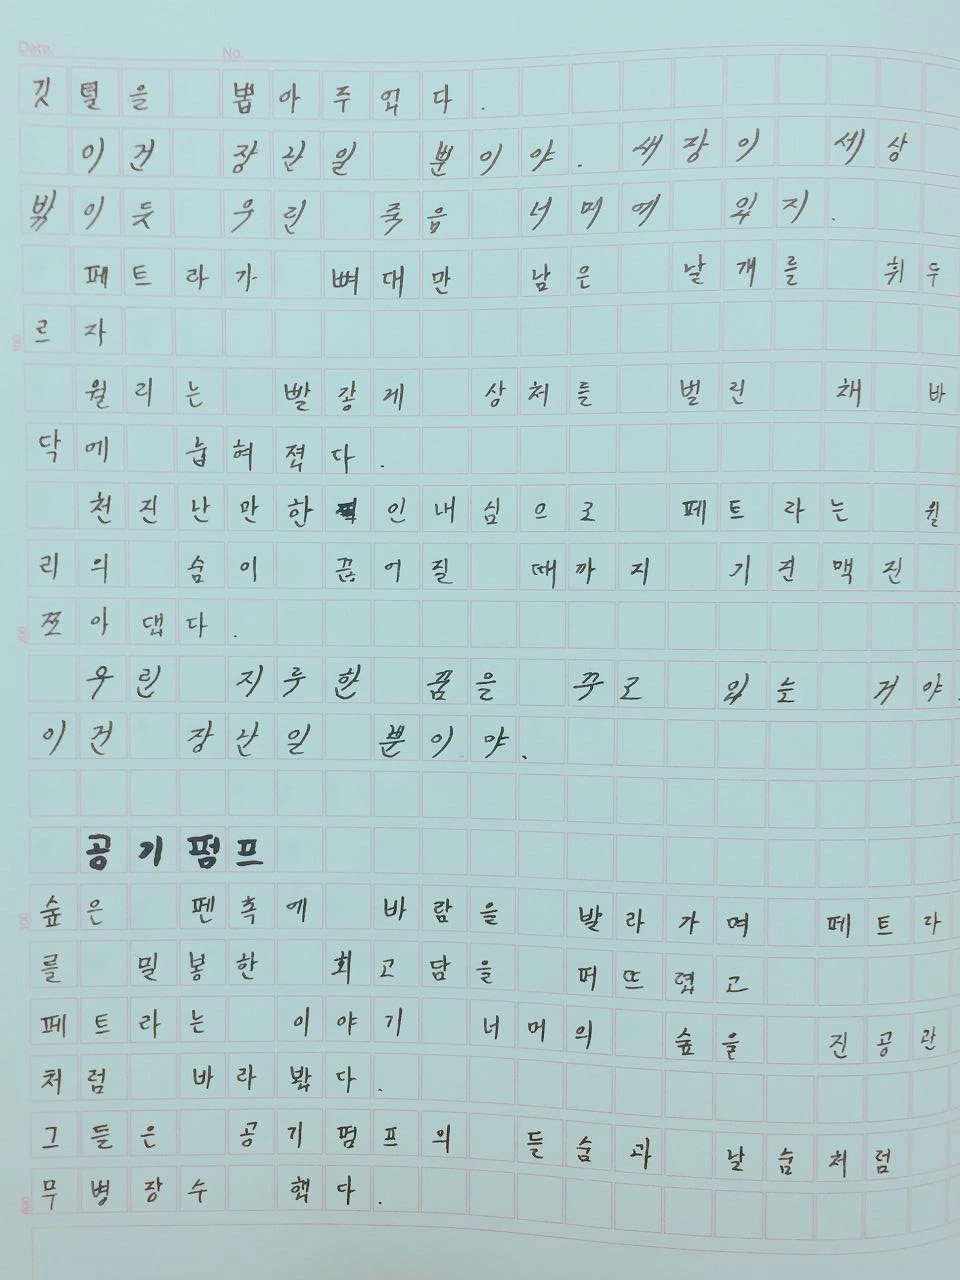 Date. No.
깃털을 뽑아주었다.
이건 장난일 뿐이야. 새장이 세상
밖이듯 우린 죽음 너머에 있지.
페트라가 뼈대만 남은 날개를 휘두
르자
100
월리는 빨갛게 상처를 벌린 채 바
닥에 눕혀졌다.
천진난만한 인내심으로 페트라는 월
리의 숨이 끊어질 때까지 기진맥진
쪼아댔다.
200
우린 지루한 꿈을 꾸고 있는 거야.
이건 장난일 뿐이야.
공기펌프
숲은 펜촉에 바람을 발라가며 페트라
300
를 밀봉한 회고담을 퍼뜨렸고
페트라는 이야기 너머의 숲을 진공관
처럼 바라봤다.
그들은 공기펌프의 들숨과 날숨처럼
무병장수 했다.
400